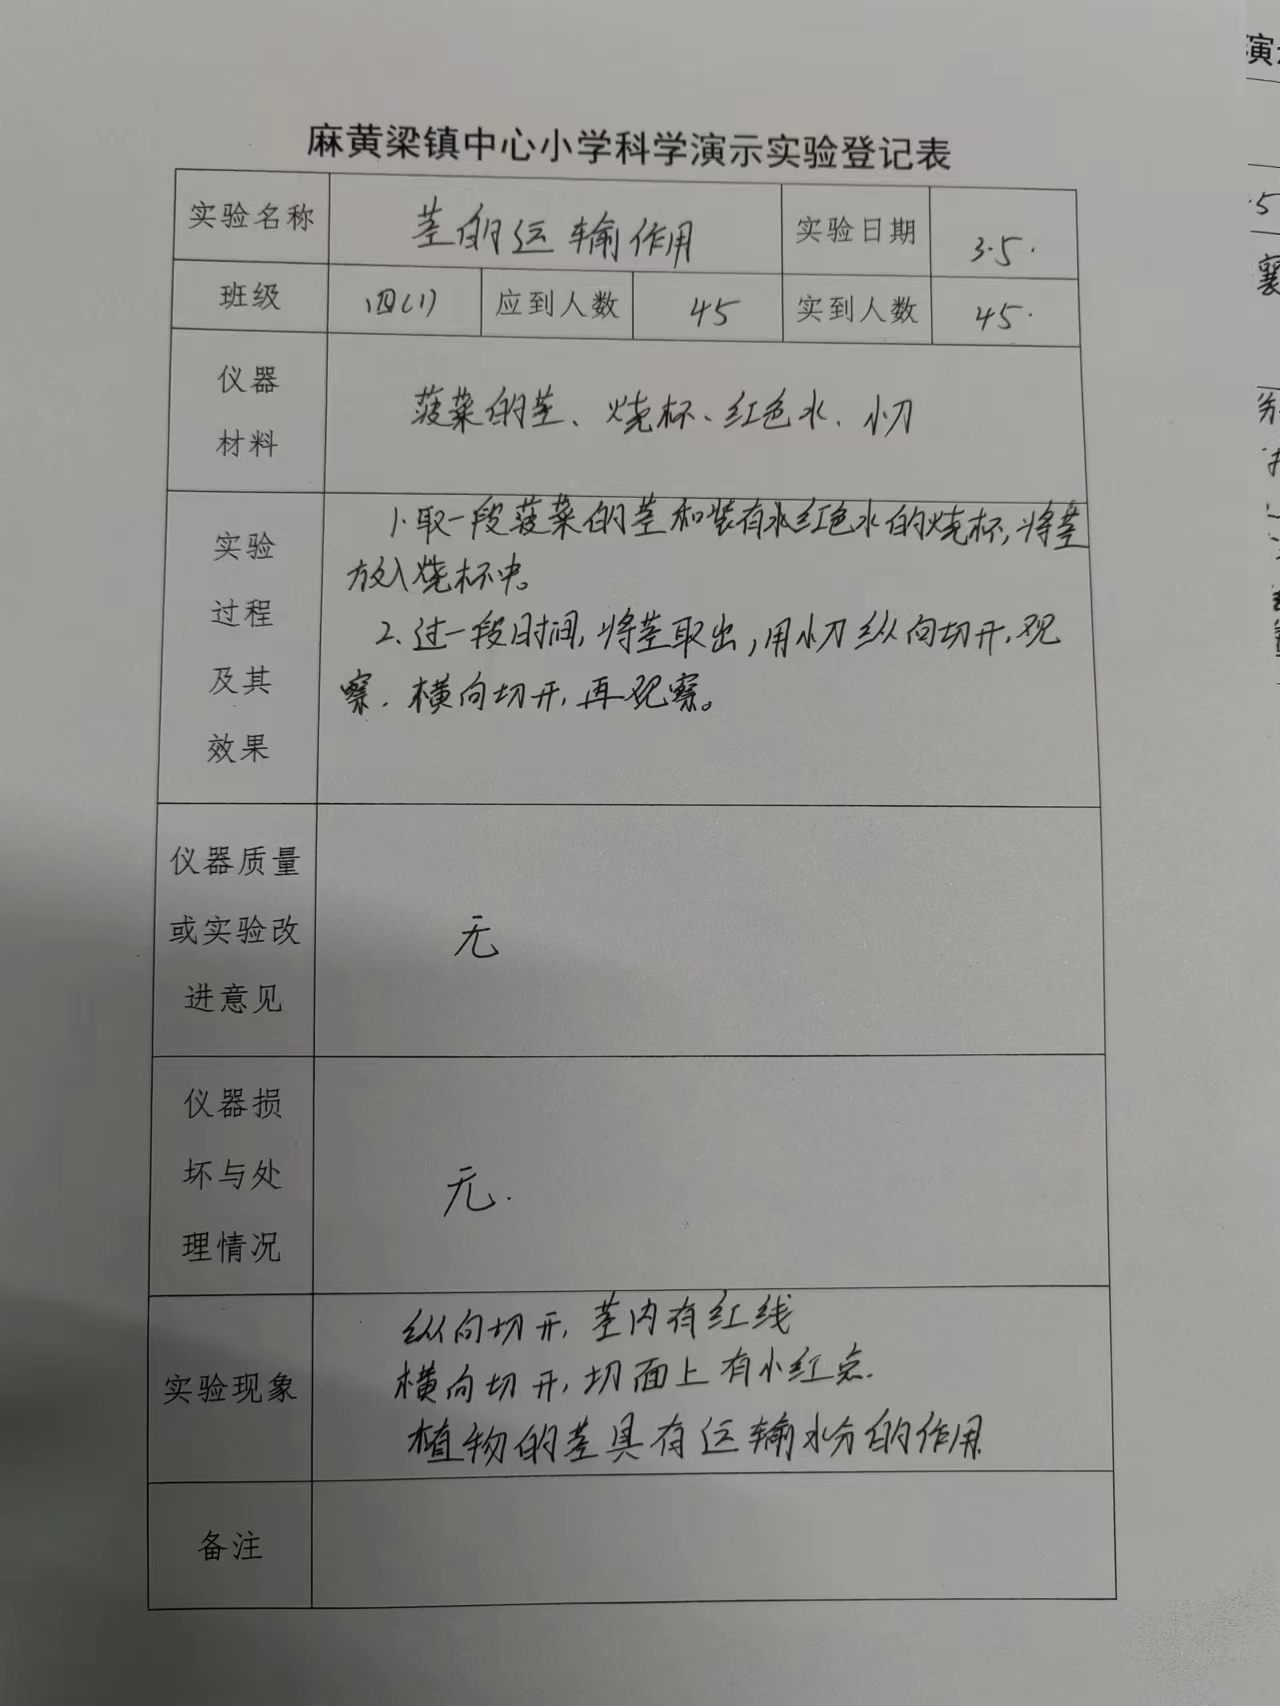 麻黄梁镇中心小学科学演示实验登记表
实验名称 茎的运输作用 实验日期 3.5.
班级 四(1) 应到人数 45 实到人数 45.
仪器
材料
菠菜的茎、烧杯、红色水、小刀
实验
过程
及其
效果
1.取一段菠菜的茎和装有水红色水的烧杯,将茎
放入烧杯中。
2.过一段时间,将茎取出,用小刀纵向切开,观
察.横向切开,再观察。
仪器质量
或实验改
进意见
无
仪器损
坏与处
理情况
无.
实验现象
纵向切开,茎内有红线
横向切开,切面上有小红点.
植物的茎具有运输水分的作用
备注
演